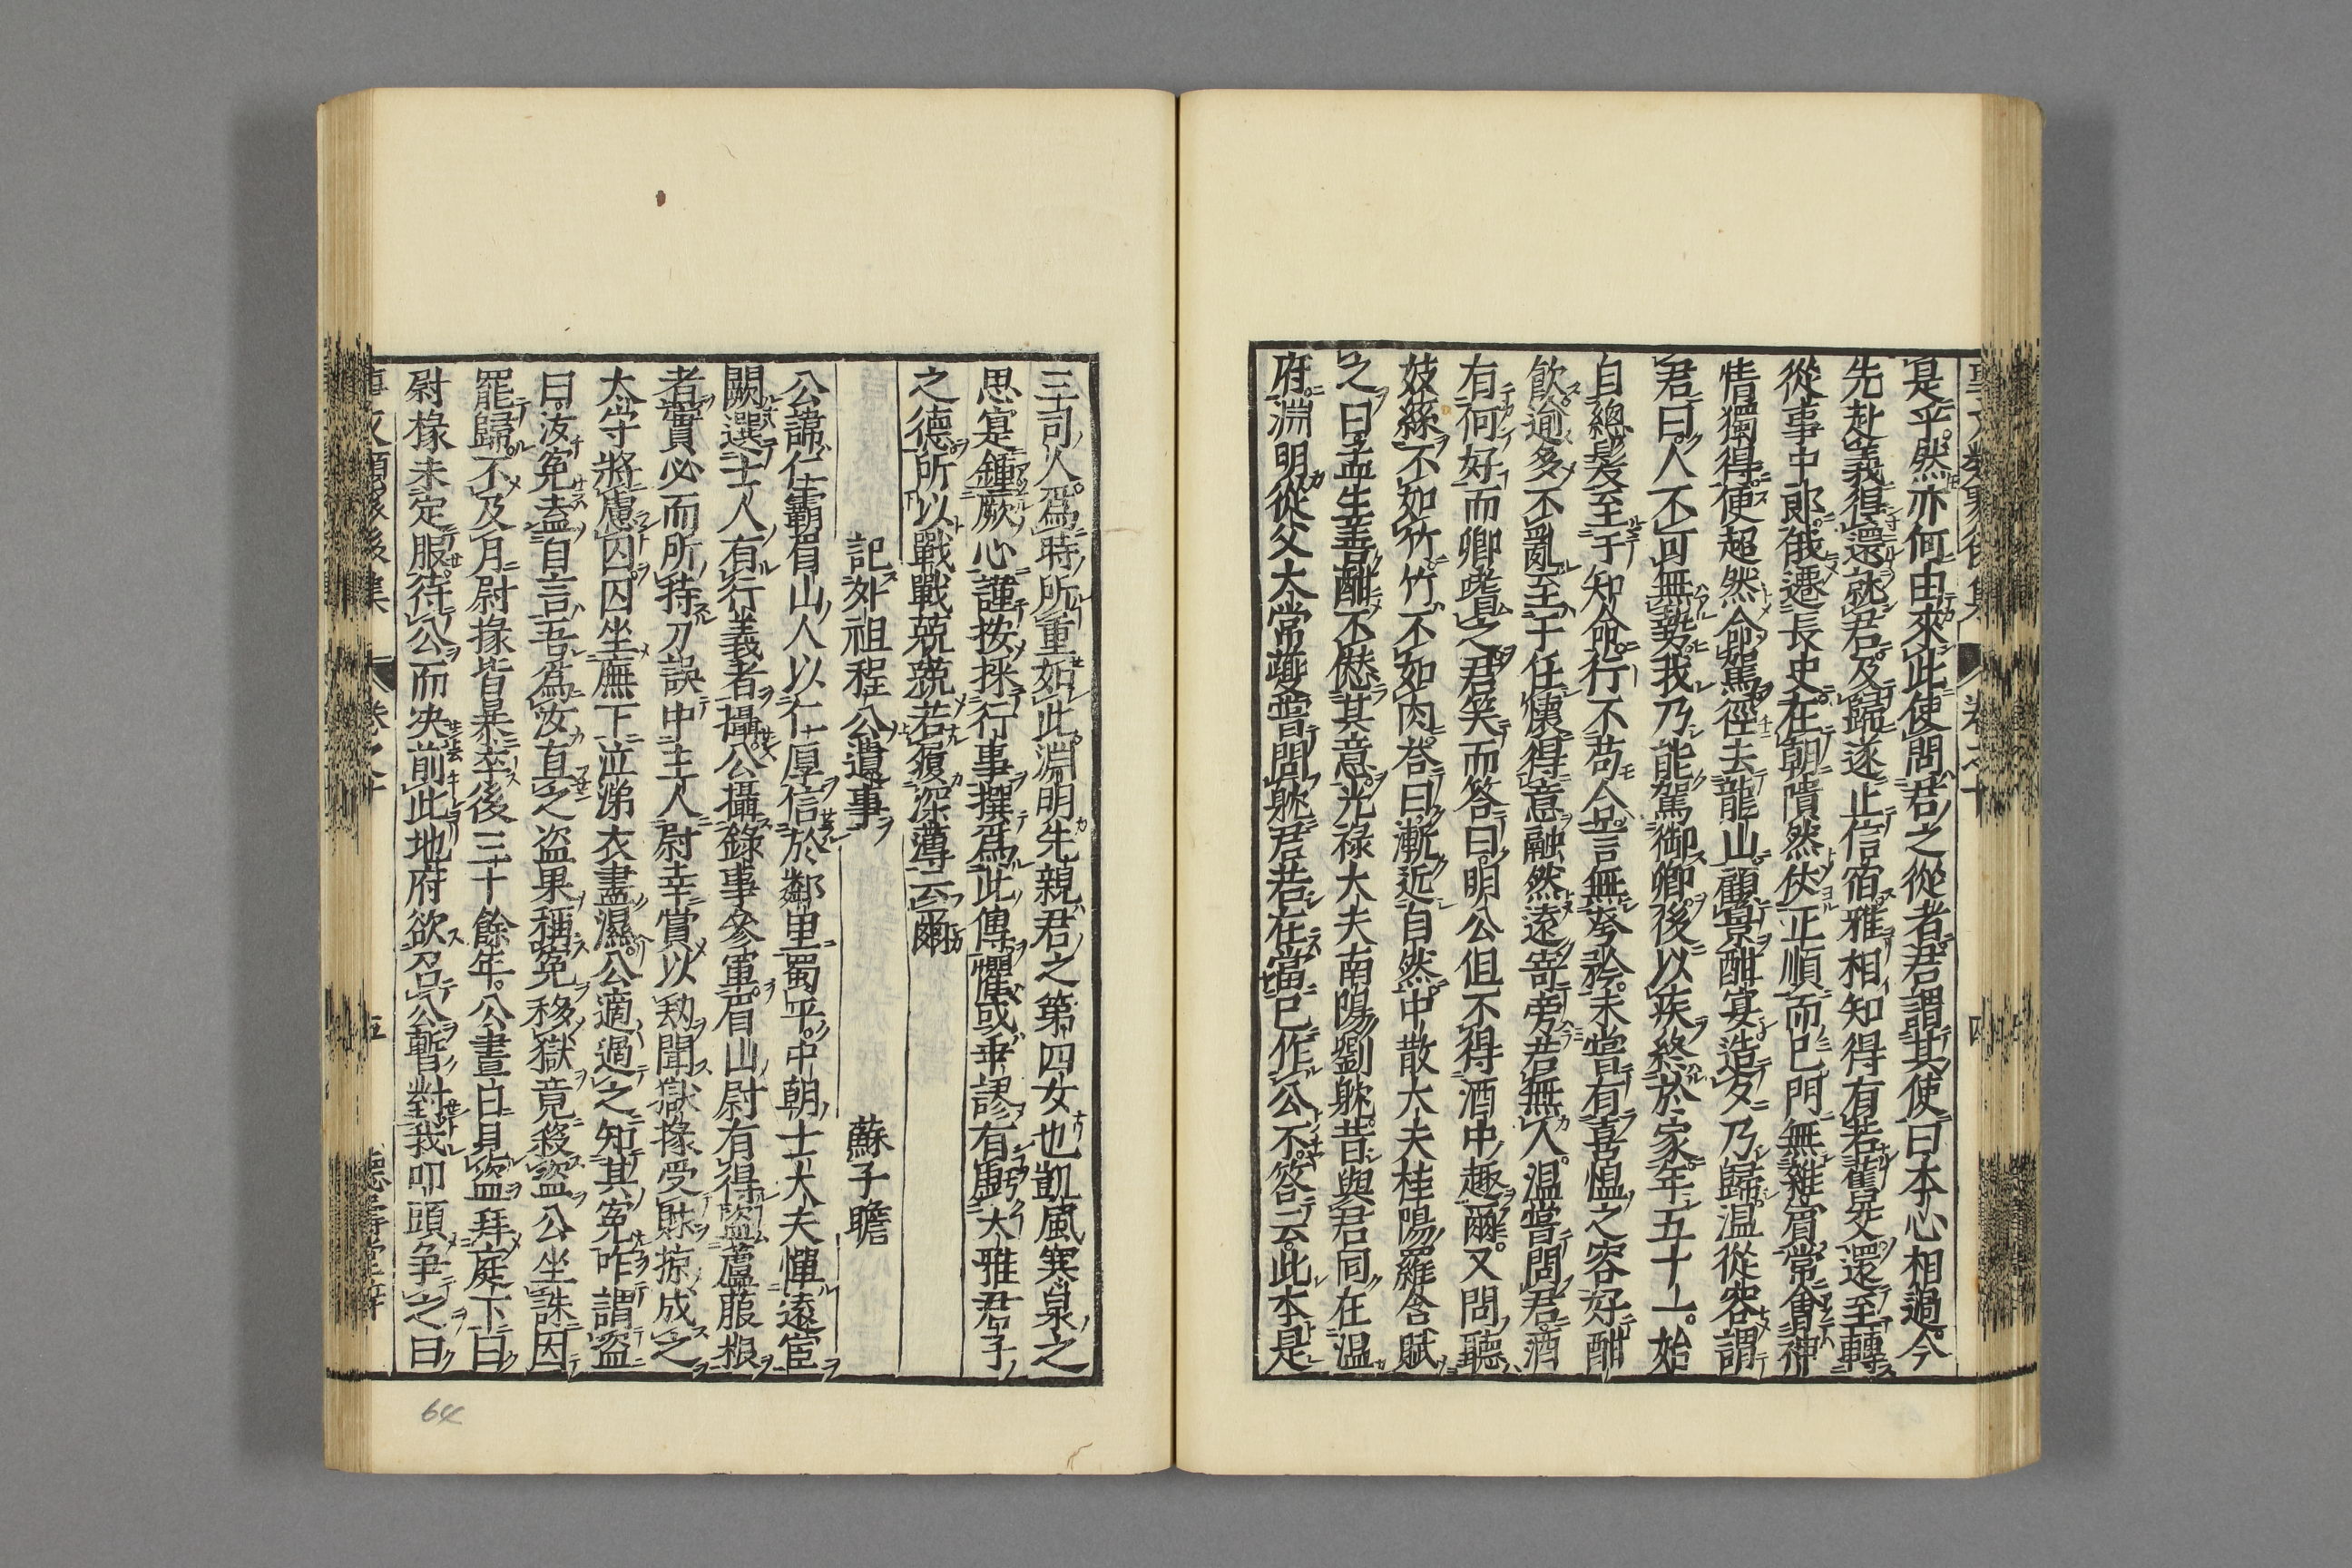 是乎然亦何由來此使問君之從者君謂其使曰本心相過今
先赴義得還就君及歸遂止信宿雅相知得有若舊交還至轉
從事中郎俄遷長史在朝隤然仗正順而已門無雜賓常會神
情獨得便超然命駕徑去龍山顧景酣宴造夕乃歸温從容謂
君曰人不可無勢我乃能駕御卿後以疾終於家年五十一始
自總髮至于知命行不苟合言無夸矜未嘗有喜愠之容好酣
飲逾多不亂至于任懷得意融然遠寄旁若無人温嘗問君酒
有何好而卿嗜之君笑而答曰明公但不得酒中趣爾又問聽
妓絲不如竹竹不如肉答曰漸近自然中散大夫桂陽羅含賦
之曰孟生善酣不愆其意光禄大夫南陽劉躭昔與君同在温
府淵明從父太常夔嘗問躭君若在當已作公不答云此本是
三司人爲時所重如此淵明先親君之第四女也凱風寒泉之
思寔鍾厥心謹按採行事撰爲此傳懼或乖謬有虧大雅君子
之德所以戰戰兢兢若履深薄云爾
記外祖程公遺事 蘇子瞻
公諱仁霸眉山人以仁厚信於鄰里蜀平中朝士大夫憚遠宦
闕選士人有行義者攝公攝録事參軍眉山尉有得盜蘆菔根
者實必而所持刀誤中主人尉幸賞以劫聞獄掾受賕掠成之
太守將慮囚囚坐廡下泣涕衣盡濕公適過之知其寃咋謂盜
曰汝寃盍自言吾爲汝直之盜果稱寃移獄竟殺盜公坐誅囚
罷歸不及月尉掾皆暴卒後三十餘年公晝日見盜拜庭下曰
尉掾未定服待公而决前此地府欲召公暫對我叩頭争之曰
卷之十 五